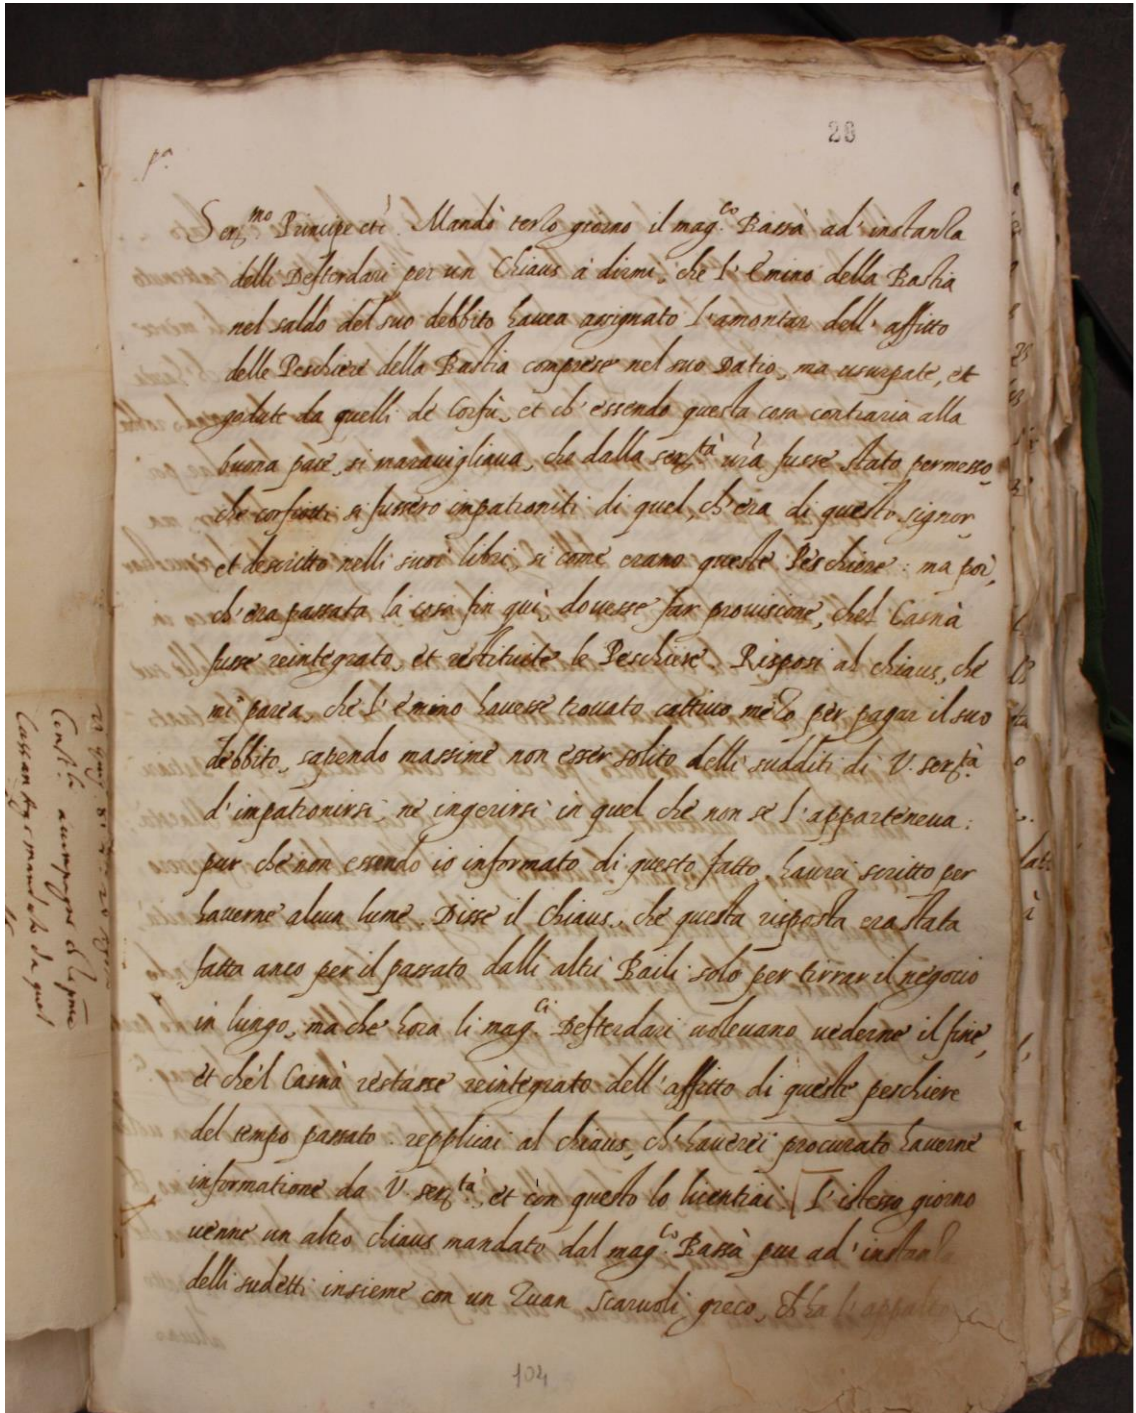 20
p.ª
Ser.mo Principe etc. Mandò terzo giorno il mag.co Bassà ad' instanza
delli Defterdari per un Chiaus à dirmi, che l' Emino della Bastia
nel saldo del suo debbito havea assignato l'amontar dell' affitto
delle Peschiere della Bastia comprese nel suo Datio, ma usurpate, et
godute da quelli de Corfù, et ch' essendo questa cosa contraria alla
buona pace, si maravigliava, che dalla ser.tà vrã fusse stato permesso,
che corfiotti si fussero impatroniti di quel, ch'era di questo signor,
et descritto nelli suoi libri, si come erano queste Peschiere: ma poi,
ch'era passata la cosa fin quì, dovesse far provisione, chel Casnà
fusse reintegrato, et restituite le Peschiere. Risposi al chiaus, che
mi parea, che l' emino havesse trovato cattivo mezo per pagar il suo
debbito, sapendo massime non esser solito delli sudditi di V. ser.tà
d' impatronirsi, ne ingerirsi in quel che non se l' apparteneva:
pur che non essendo io informato di questo fatto, haurei scritto per
haverne alcun lume. Disse il Chiaus, che questa risposta era stata
fatta anco per il passato dalli altri Baili solo per tirrar il negocio
in lungo, ma che hora li mag.ci Defterdari volevano vederne il fine,
et che'l Casnà restasse reintegrato dell' affitto di queste peschiere
del tempo passato: repplicai al chiaus, ch' haverei procurato haverne
informatione da V. ser.tà, et con questo lo licentiai: [L' istesso giorno
venne un altro chiaus mandato dal mag.co Bassà pur ad' instanza
delli sudetti insieme con un Zuan Scarvoli greco, ch' ha l'
104